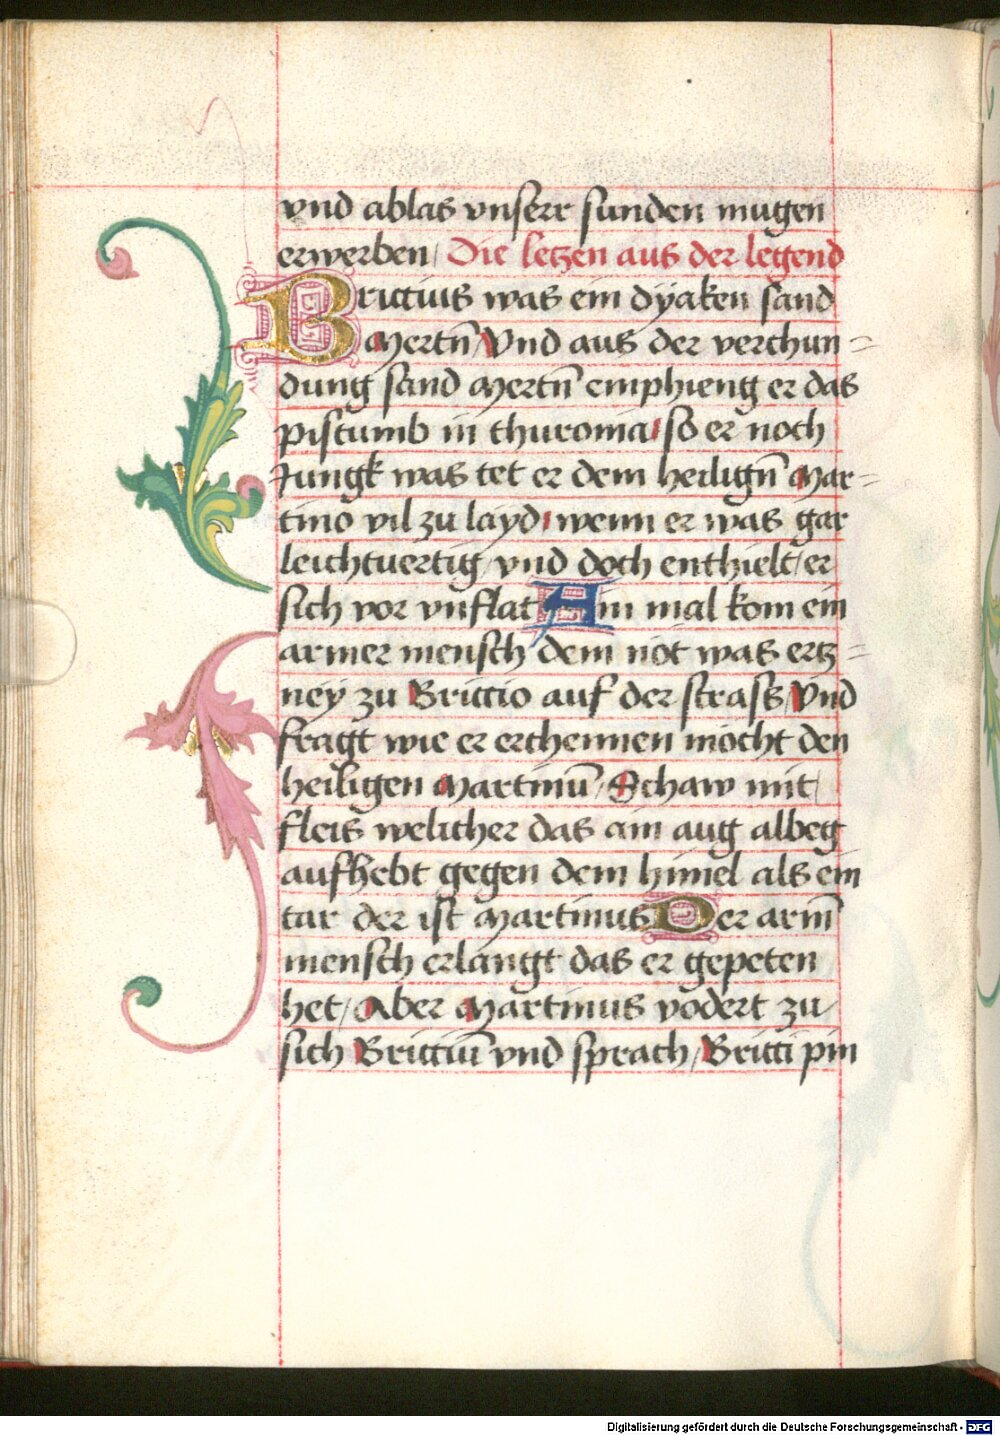 vnd ablas vnserr sunden mugen
erwerben / Die letzen aus der legend
Brictius was ein dyaken sand
Mertn̄ / Vnd aus der verchun=
dung sand Mertn̄ emphieng er das
pistumb in thuronia / so er noch
Jungk was tet er dem heilign̄ Mar=
tino vil zu layd / wenn er was gar
leichtuertig / vnd doch enthielt er
sich vor vnflat Ain mal kom ein
armer mensch dem not was ertz=
ney zu Brictio auf der strass / Vnd
fragt wie er erchennen möcht den
heiligen Martinū / Schaw mit
fleis welicher das ain aug albeg
aufhebt gegen dem himel als ein
tar der ist Martinus Der arm̄
mensch erlangt das er gepeten
het / Aber Martinus vodert zu
sich Brictiū vnd sprach / Bricti pin
Digitalisierung gefördert durch die Deutsche Forschungsgemeinschaft - DFG